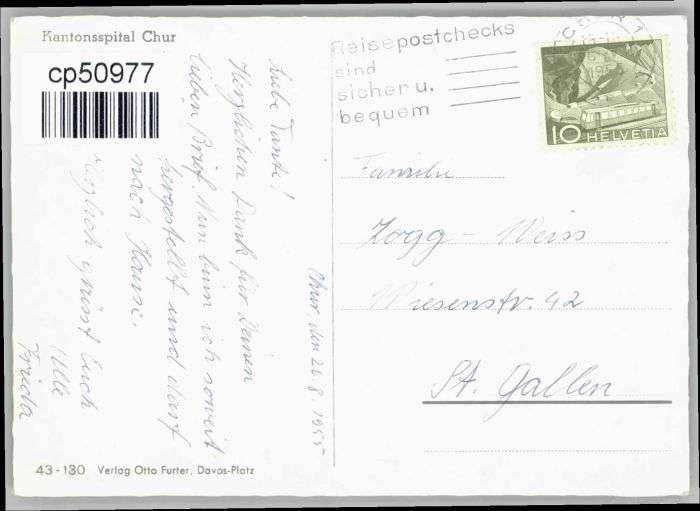 Kantonsspital Chur
cp50977
Chur, den 26. 8. 1955
Liebe Tante!
Herzlichen Dank für Deinen
lieben Brief. Nun bin ich soweit
hergestellt und darf
nach Hause.
Herzlich grüsst Euch
Alle
Frieda
43-130 Verlag Otto Furter, Davos-Platz
Reisepostchecks
sind
sicher u.
bequem
CHUR 1
10 HELVETIA
Familie
Zogg - Weiss
Wiesenstr. 42
St. Gallen